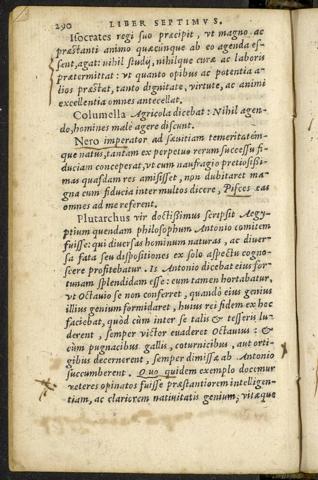 290 LIBER SEPTIMVS.
Isocrates regi suo præcipit, vt magno ac
præstanti animo quæcunque ab eo agenda es-
sent, agat: nihil studij, nihilque curæ ac laboris
prætermittat: vt quanto opibus ac potentia a-
lios præstat, tanto dignitate, virtute, ac animi
excellentia omnes antecellat.
Columella Agricola dicebat: Nihil agen-
do, homines malè agere discunt.
Nero imperator ad sæuitiam temeritatémq-
que natus, tantam ex perpetuo rerum successu fi-
duciam conceperat, vt cum naufragio pretiosissi-
mas quasdam res amisisset, non dubitaret ma-
gna cum fiducia inter multos dicere, Pisces eas
omnes ad me referent.
Plutarchus vir doctissimus scripsit Aegy-
ptium quendam philosophum Antonio comitem
fuisse: qui diuersas hominum naturas, ac diuer-
sa fata seu dispositiones ex solo aspectu cogno-
scere profitebatur. Is Antonio dicebat eius for-
tunam splendidam esse: eum tamen hortabatur,
vt Octauio se non conferret, quandò eius genius
illius genium formidaret, huius rei fidem ex hoc
faciebat, quòd cùm inter se talis & tesseris lu-
derent, semper victor euaderet Octauius: &
cùm pugnacibus gallis, coturnicibus, aut orti-
gibus decernerent, semper dimissæ ab Antonio
succumberent. Quo quidem exemplo docemur
veteres opinatos fuisse præstantiorem intelligen-
tiam, ac clariorem natiuitatis genium, vitæque